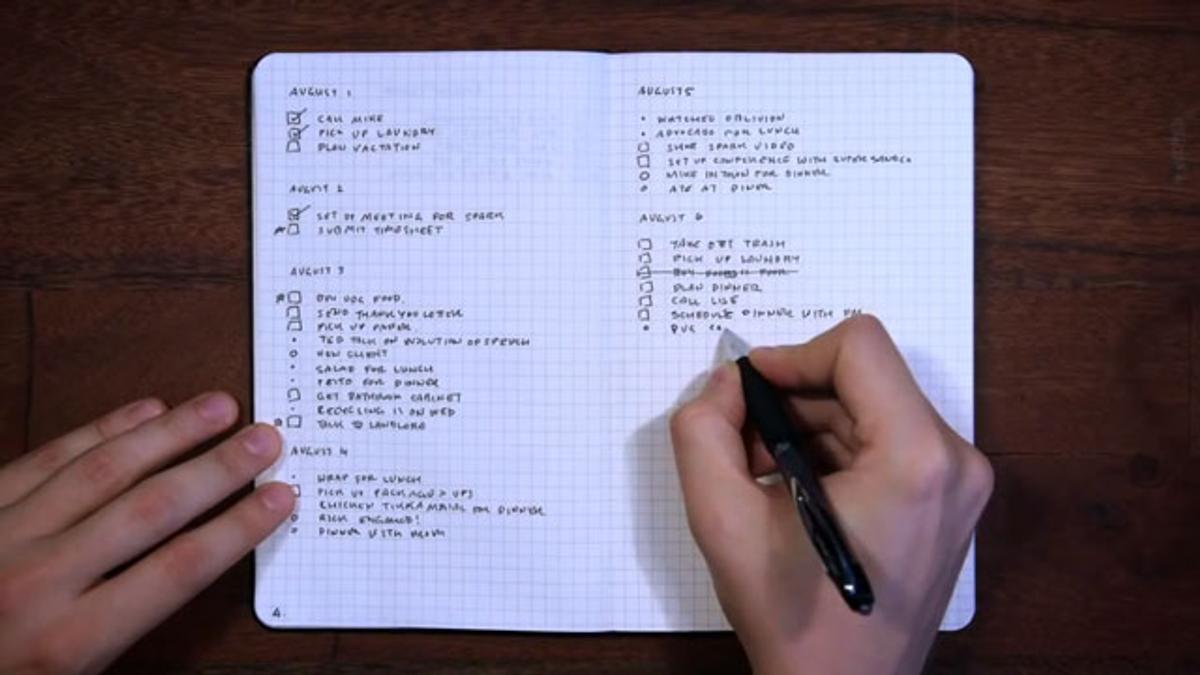 AUGUST 1
CALL MIKE
PICK UP LAUNDRY
PLAN VACTATION
AUGUST 2
SET UP MEETING FOR SPARK
SUBMIT TIMESHEET
AUGUST 3
BUY DOG FOOD
SEND THANK YOU LETTER
PICK UP PAPER
TED TALK ON EVOLUTION OF SPEECH
NEW CLIENT
SALAD FOR LUNCH
FOR DINNER
GET BATHROOM CABINET
RECYCLING IS ON WED
TALK TO LANDLORD
AUGUST 4
WRAP FOR LUNCH
PICK UP PACKAGE > UPS
CHICKEN TIKKA MASALA FOR DINNER
RICK ENGAGED!
DINNER WITH
4.
AUGUST 5
WATCHED OBLIVION
AVOCADO FOR LUNCH
SPARK VIDEO
SET UP CONFERENCE WITH
MIKE IN TOWN FOR DINNER
ATE AT DINER
AUGUST 6
TAKE OUT TRASH
PICK UP LAUNDRY
PLAN DINNER
CALL LISE
SCHEDULE DINNER WITH